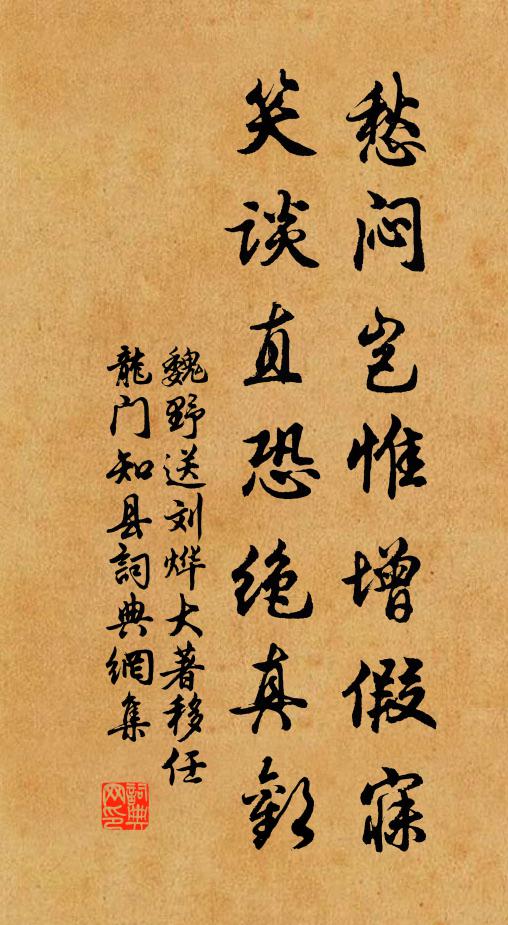 愁闷岂惟增假寐
笑谈直恐绝真欢
魏野送刘烨大著移任
龍门知县詞典網集
詞典
网印